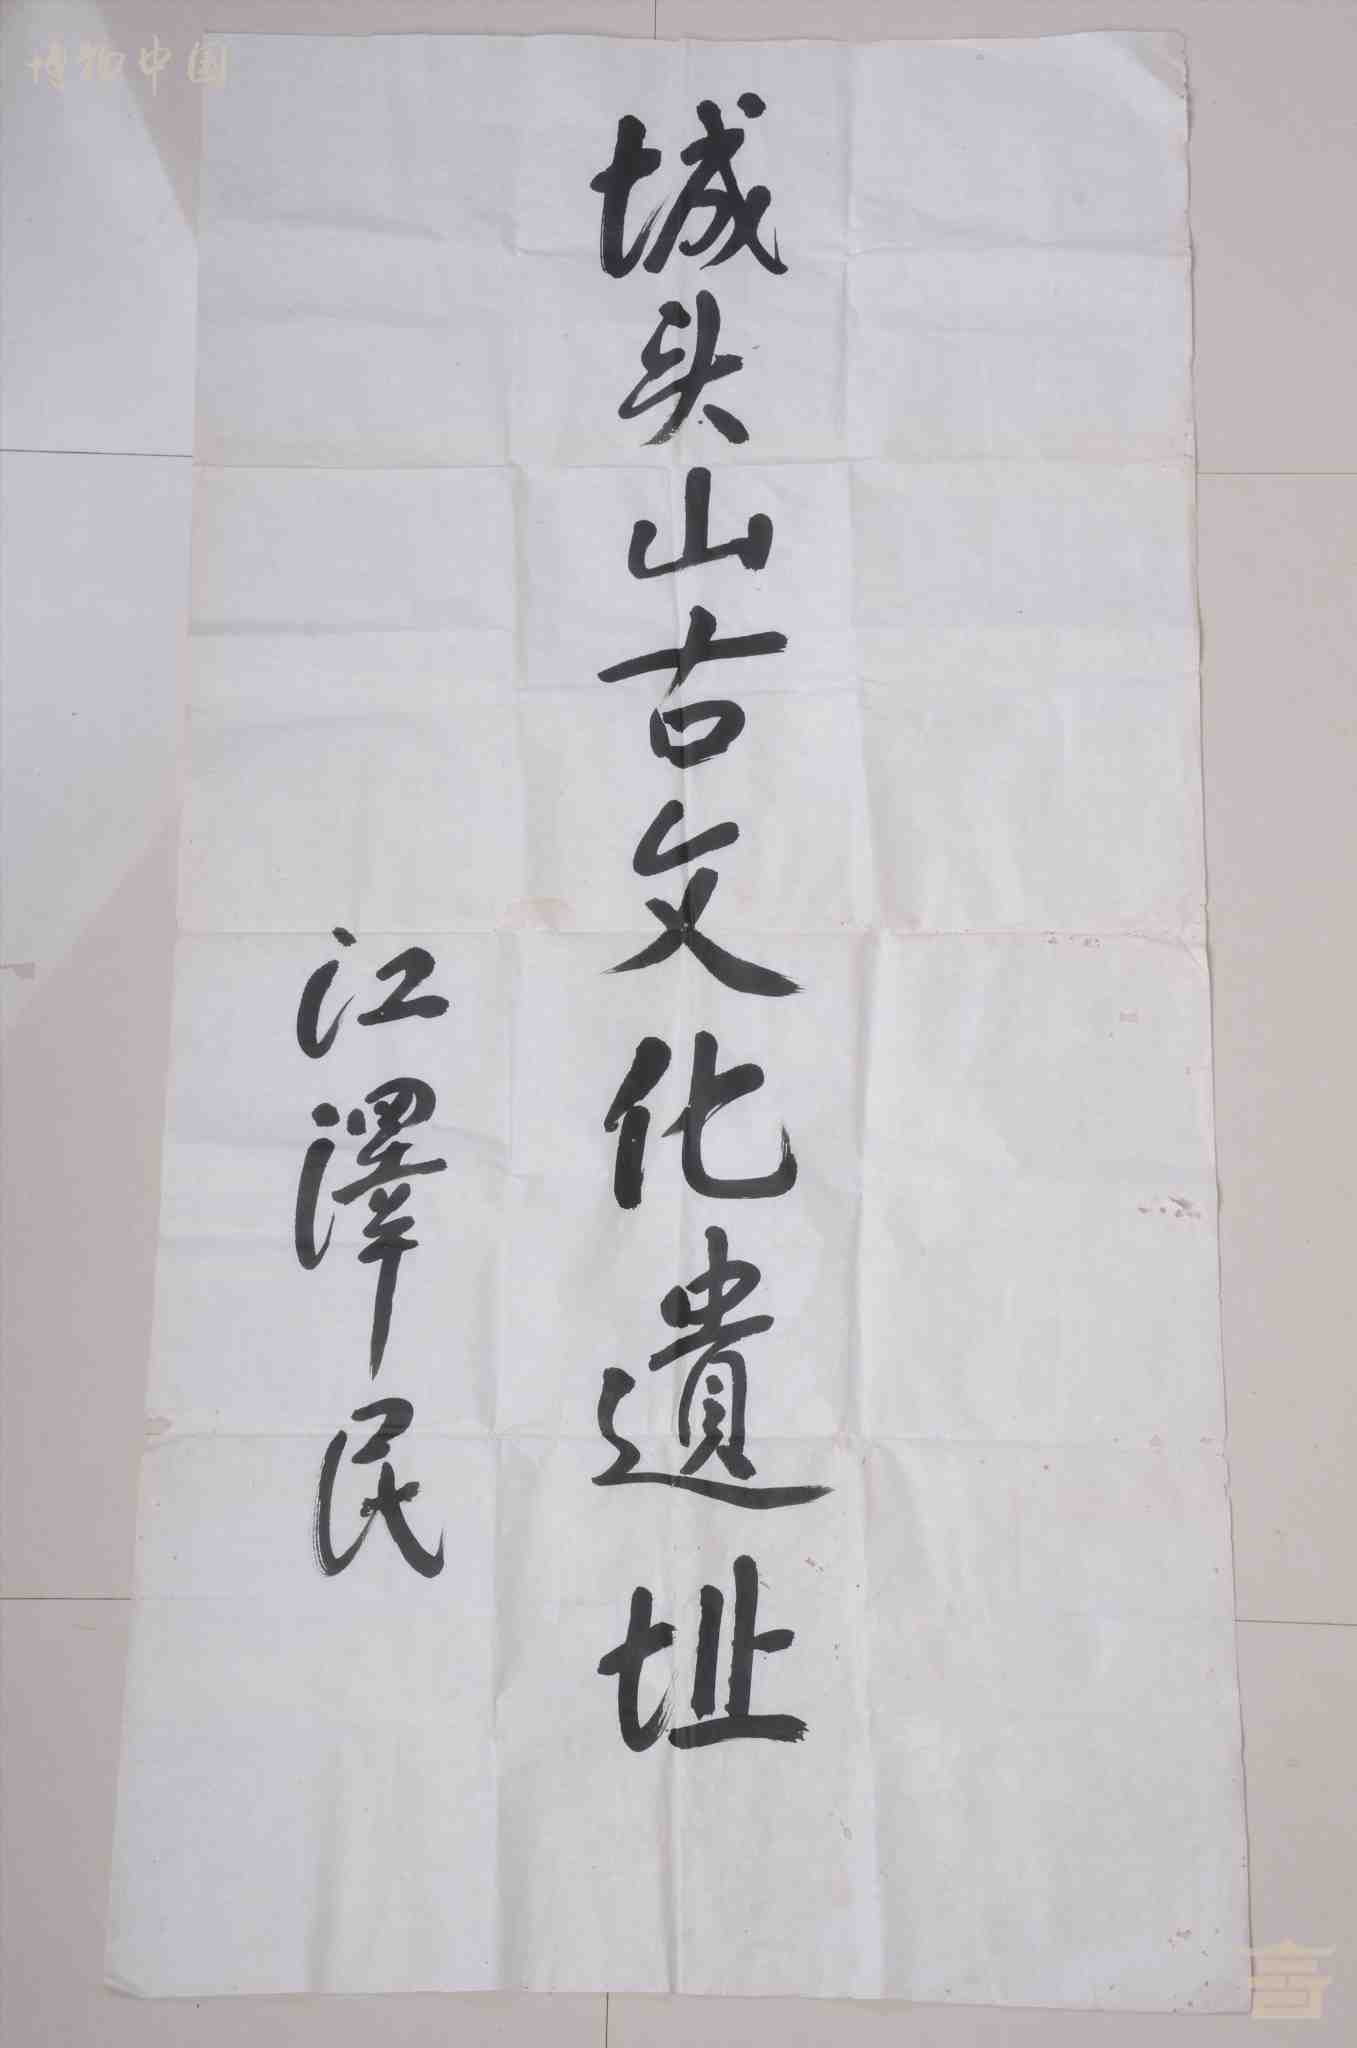 博物中国
城头山古文化遺址
江澤民